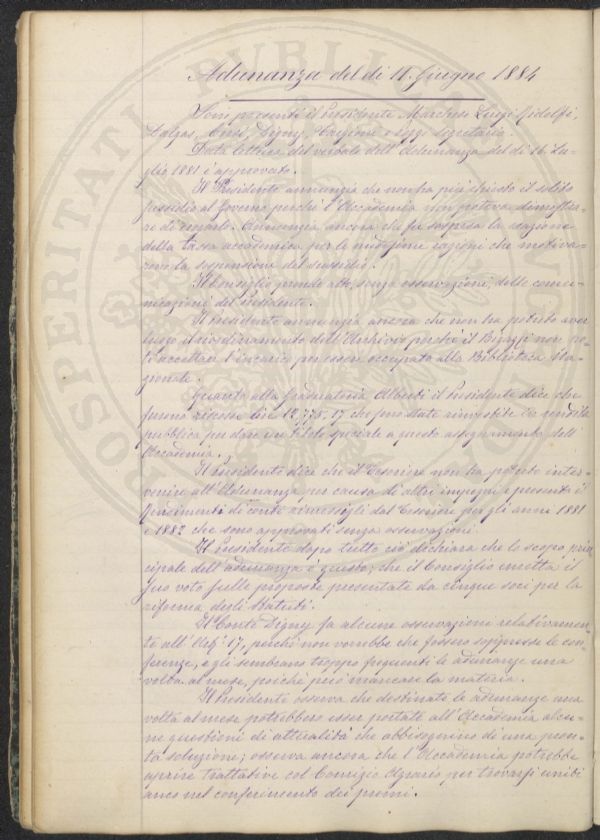 Adunanza del dì 11. Giugno 1884
Son presenti il Presidente Marchese Luigi Ridolfi,
Dalgas, Digny, e segretario.
Data lettura del verbale dell'Adunanza del dì 16 Lu-
glio 1881 è approvato.
Il Presidente annunzia che non ha più chiesto il solito
sussidio al Governo perchè l'Accademia non poteva dimostra-
re di Annunzia ancora che fu sospesa la esazione
della tassa accademica per le medesime ragioni che motiva-
rono la sospensione del sussidio.
Il Consiglio prende atto, senza osservazioni, delle comu-
nicazioni del Presidente.
Il Presidente annunzia ancora che non ha potuto aver
luogo il riordinamento dell'Archivio perchè il Bigazzi non po-
tè accettar l'incarico per essere occupato alla Biblioteca Na-
zionale.
Quanto alla Alberti il Presidente dice che
furono riscosse lire 12,775,17 che furono rinvestite in rendita
pubblica per dare un titolo speciale a questo assegnamento dell'
Accademia.
Il Presidente dice che il Tesoriere non ha potuto inter-
venire all'Adunanza per causa di altri impegni e presenta i
rendimenti di conto rimessigli dal Tesoriere per gli anni 1881
e 1882 che sono approvati senza osservazioni.
Il Presidente dopo tutto ciò dichiara che lo scopo prin-
cipale dell'adunanza è questo, che il Consiglio emetta il
suo voto sulle proposte presentate da cinque soci per la
riforma degli Statuti.
Il Conte Digny fa alcune osservazioni relativamen-
te all'Art. 17, perchè non vorrebbe che fossero soppresse le con-
ferenze, e gli sembrano troppo frequenti le adunanze una
volta al mese, poichè può mancare la materia.
Il Presidente osserva che destinate le adunanze una
volta al mese potrebbero esser portate all'Accademia alcu-
ne questioni di attualità che abbisognino di una pron-
ta soluzione; osserva ancora che l'Accademia potrebbe
aprire trattative col Comizio Agrario per trovarsi uniti
anco nel conferimento dei premi.